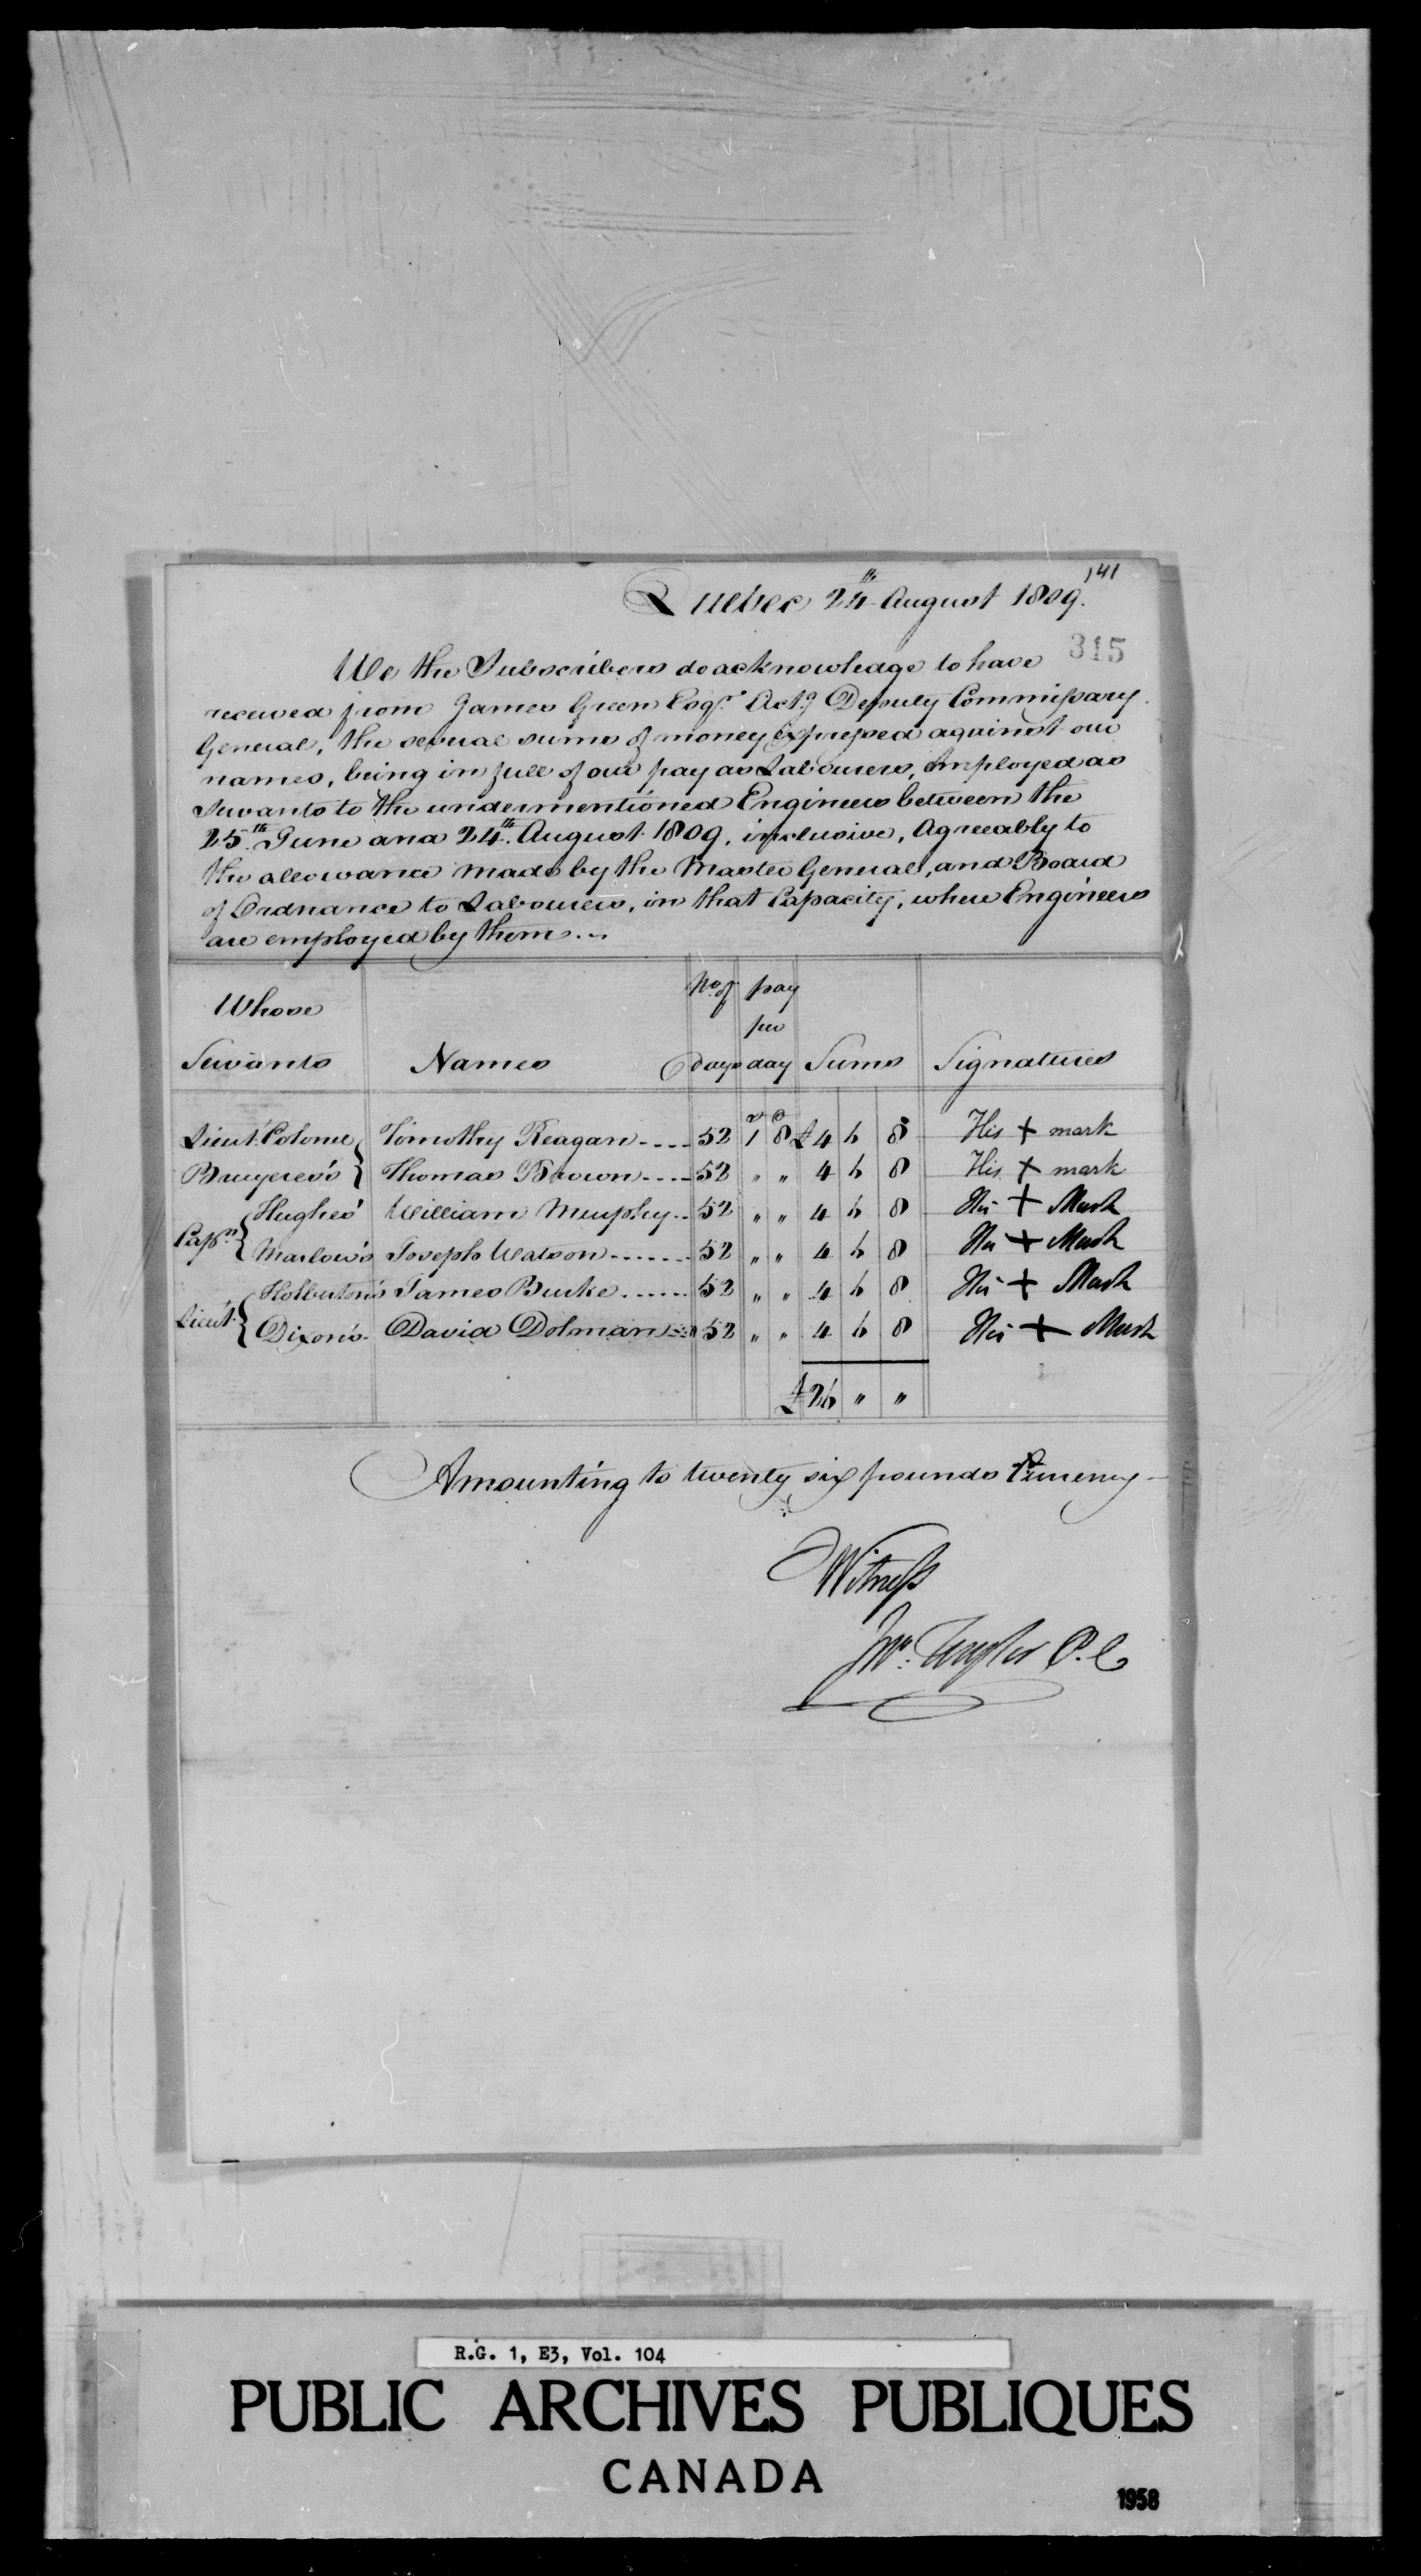 141
Quebec 24th August 1809.
315
We the Subscribers do acknowledge to have
received from James Green Esqr. Actg Deputy Commissary
General, the several sums of money expressed against our
names, being in full of our pay as Labourers, employed as
Servants to the undermentioned Engineers between the
25th. June and 24th. August 1809, inclusive, Agreeably to
the allowance made by the Master General, and Board
of Ordnance to Labourers, in that Capacity, where Engineers
are employed by them.
Whose Servants Names No. of days pay per day Sums Signatures
Lieut. Colonel Bruyeres's } Timothy Reagan 52 1 8 £4 6 8 His + mark
Thomas Brown 52 " " 4 6 8 His + mark
Capn. { Hughes' William Murphey 52 " " 4 6 8 His + Mark
Marlow's Joseph Watson 52 " " 4 6 8 His + Mark
Lieut. { Holberton's James Burke 52 " " 4 6 8 His + Mark
Dixon's David Dolman 52 " " 4 6 8 His + Mark
£26 " "
Amounting to twenty six pounds Currency
Witness
Jno. Taylor
R.G. 1, E3, Vol. 104
PUBLIC ARCHIVES PUBLIQUES
CANADA
1958